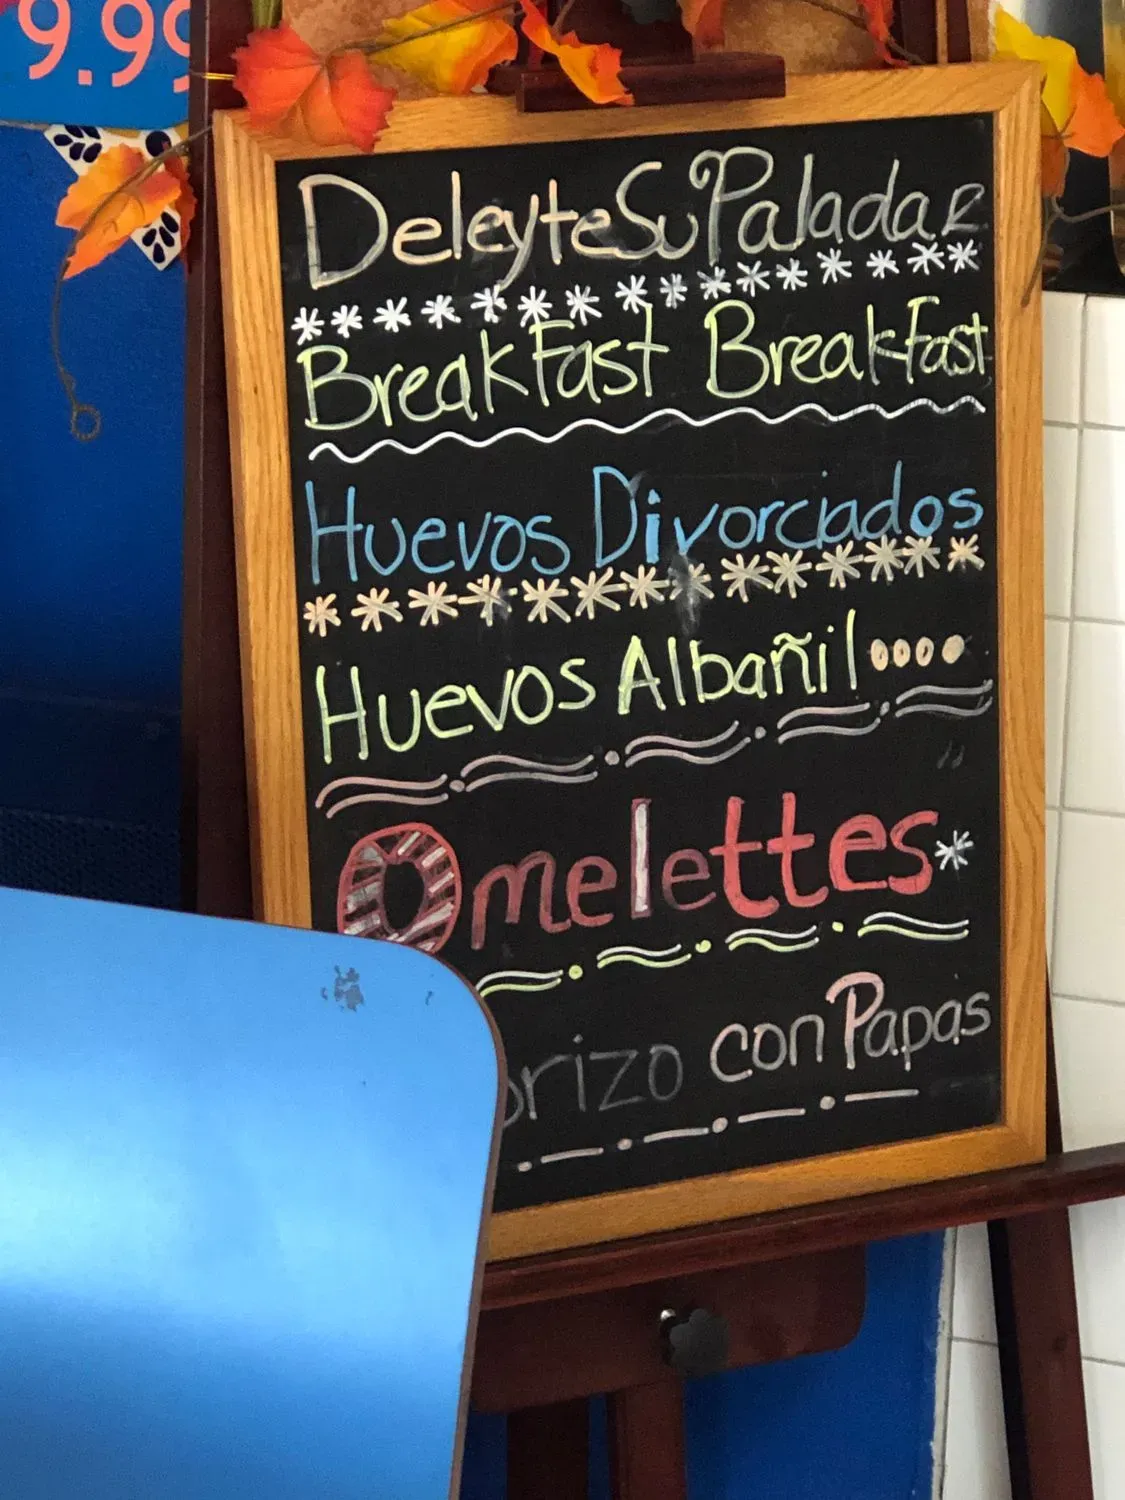 9.99
Deleyte Su Paladar
BreakFast BreakFast
Huevos Divorciados
Huevos Albañil....
Omelettes*
orizo con Papas